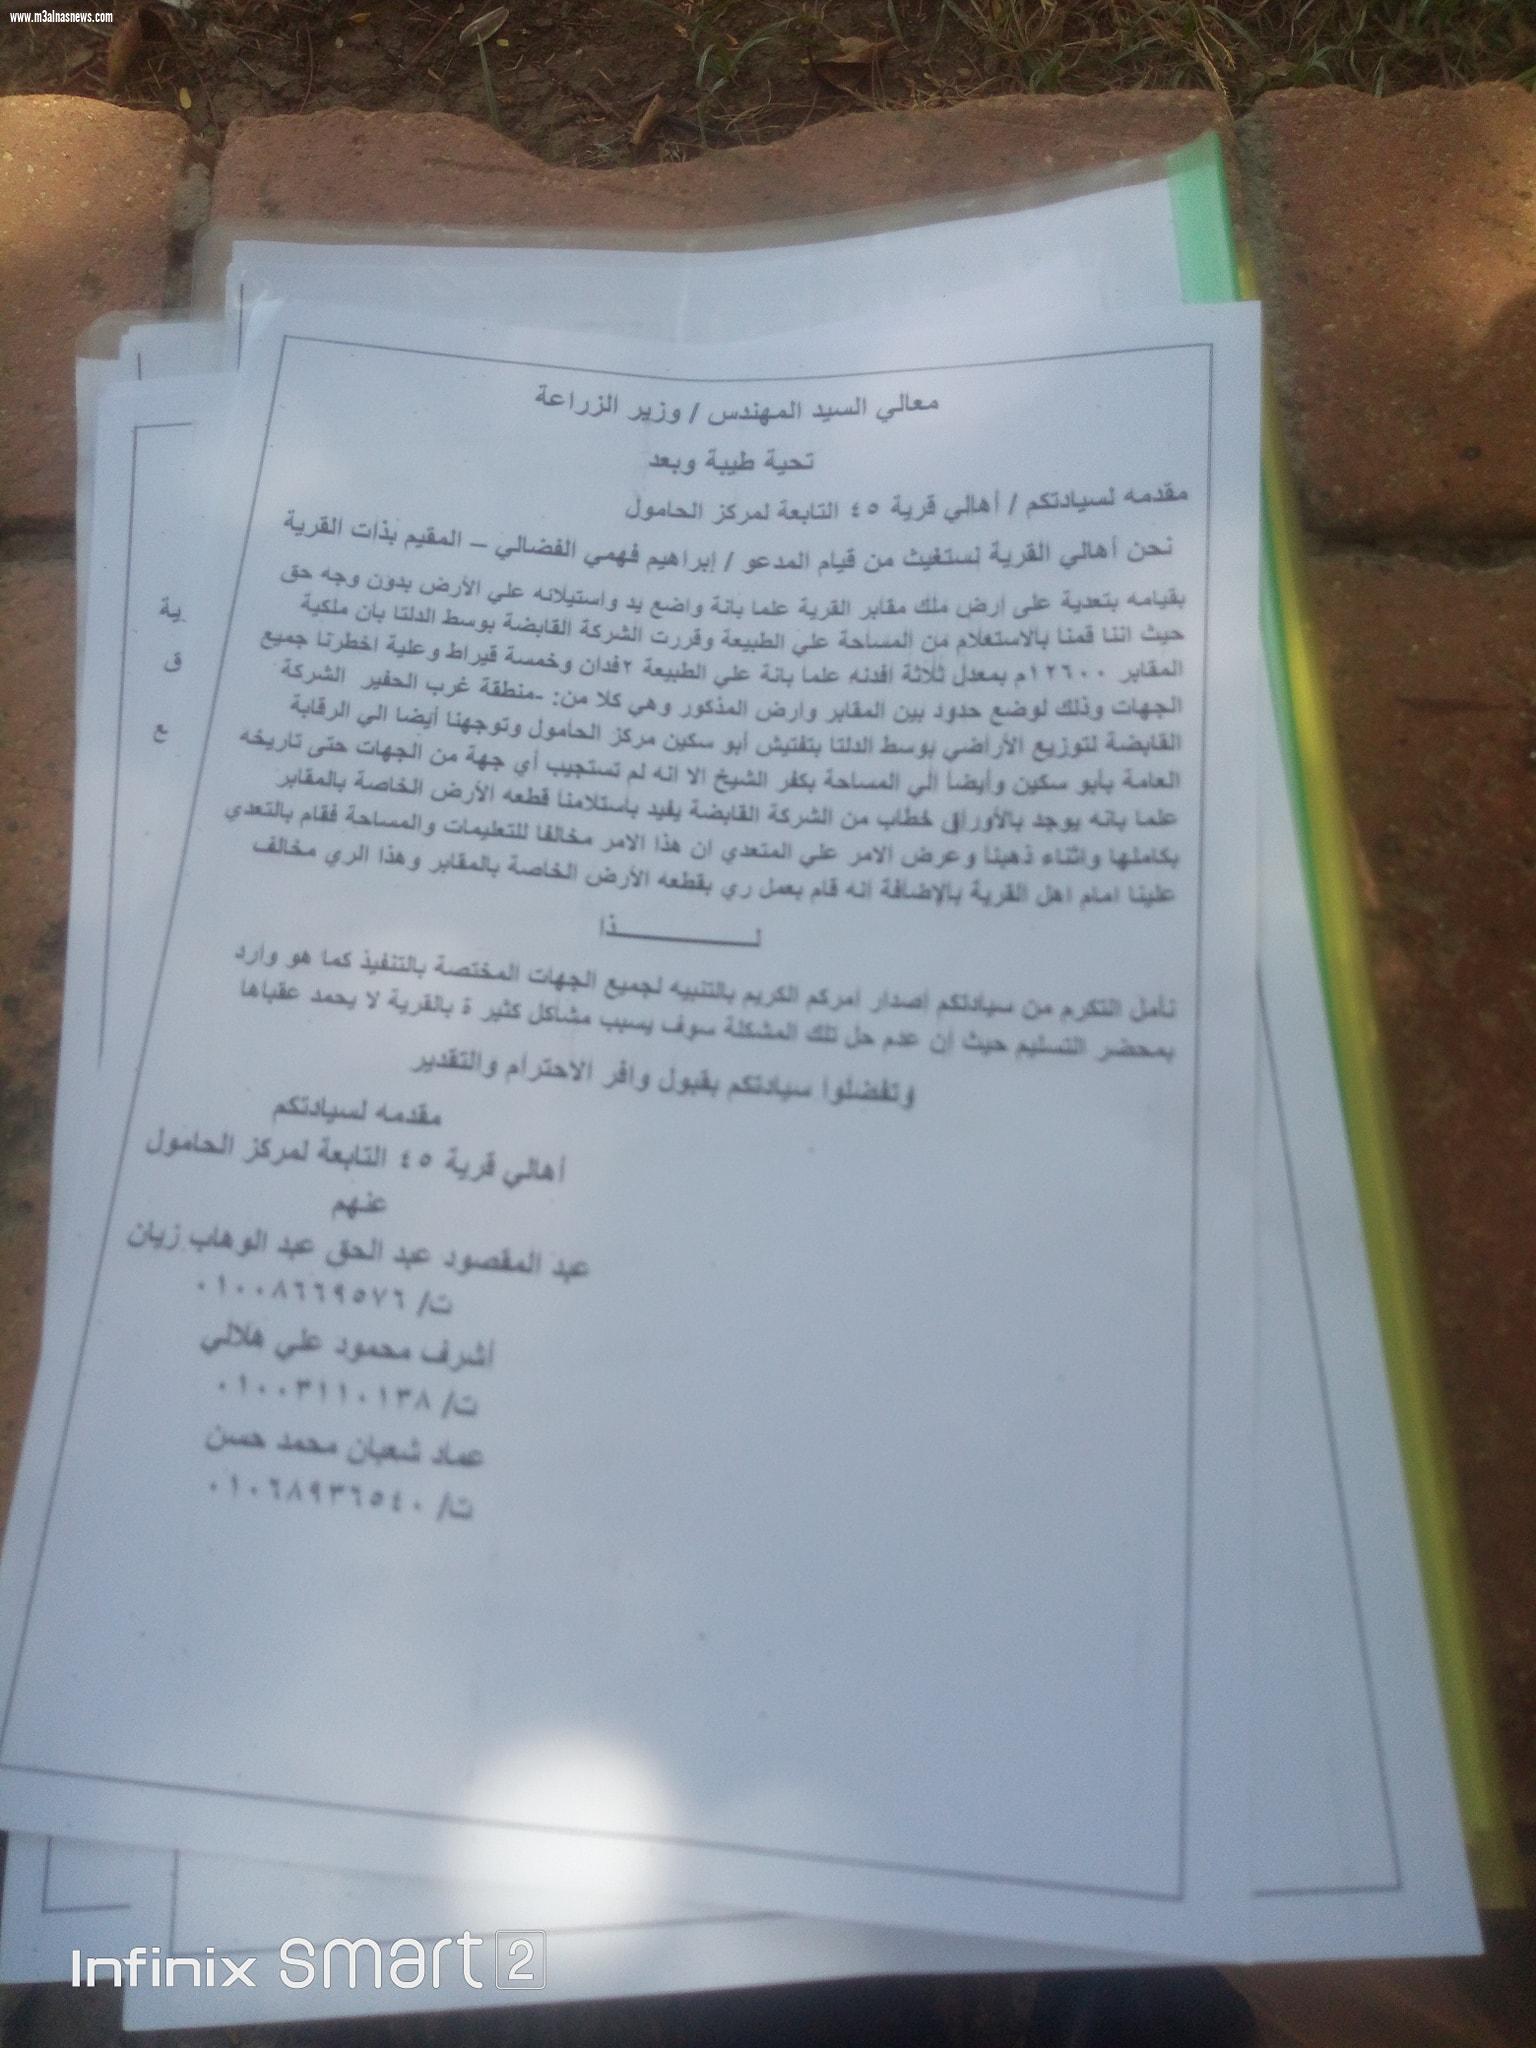 www.m3alnasnews.com
معالي السيد المهندس / وزير الزراعة
تحية طيبة وبعد
مقدمه لسيادتكم / أهالي قرية ٤٥ التابعة لمركز الحامول
نحن أهالي القرية نستغيث من قيام المدعو / إبراهيم فهمي الفضالي – المقيم بذات القرية
بقيامه بتعدية على أرض ملك مقابر القرية علما بانة واضع يد واستيلائه علي الأرض بدون وجه حق
حيث اننا قمنا بالاستعلام من المساحة علي الطبيعة وقررت الشركة القابضة بوسط الدلتا بأن ملكية
المقابر ١٢٦٠٠م بمعدل ثلاثة افدنه علما بانة علي الطبيعة ٢فدان وخمسة قيراط وعلية اخطرنا جميع
الجهات وذلك لوضع حدود بين المقابر وارض المذكور وهي كلا من: -منطقة غرب الحفير الشركة
القابضة لتوزيع الأراضي بوسط الدلتا بتفتيش أبو سكين مركز الحامول وتوجهنا أيضا الي الرقابة
العامة بأبو سكين وأيضا الي المساحة بكفر الشيخ الا انه لم تستجيب أي جهة من الجهات حتى تاريخه
علما بانه يوجد بالأوراق خطاب من الشركة القابضة يفيد باستلامنا قطعه الأرض الخاصة بالمقابر
بكاملها واثناء ذهبنا وعرض الامر علي المتعدي ان هذا الامر مخالفا للتعليمات والمساحة فقام بالتعدي
علينا امام اهل القرية بالإضافة انه قام بعمل ري بقطعه الأرض الخاصة بالمقابر وهذا الري مخالف
لـــــــــــــذا
نأمل التكرم من سيادتكم اصدار امركم الكريم بالتنبيه لجميع الجهات المختصة بالتنفيذ كما هو وارد
بمحضر التسليم حيث إن عدم حل تلك المشكلة سوف يسبب مشاكل كثير ة بالقرية لا يحمد عقباها
وتفضلوا سيادتكم بقبول وافر الاحترام والتقدير
مقدمه لسيادتكم
أهالي قرية ٤٥ التابعة لمركز الحامول
عنهم
عبد المقصود عبد الحق عبد الوهاب زيان
ت/ ٠١٠٠٨٦٦٩٥٧٦
أشرف محمود علي هلالي
ت/ ٠١٠٠٣١١٠١٣٨
عماد شعبان محمد حسن
ت/ ٠١٠٦٨٩٣٦٥٤٠
ية
ق
ع
Infinix smart 2